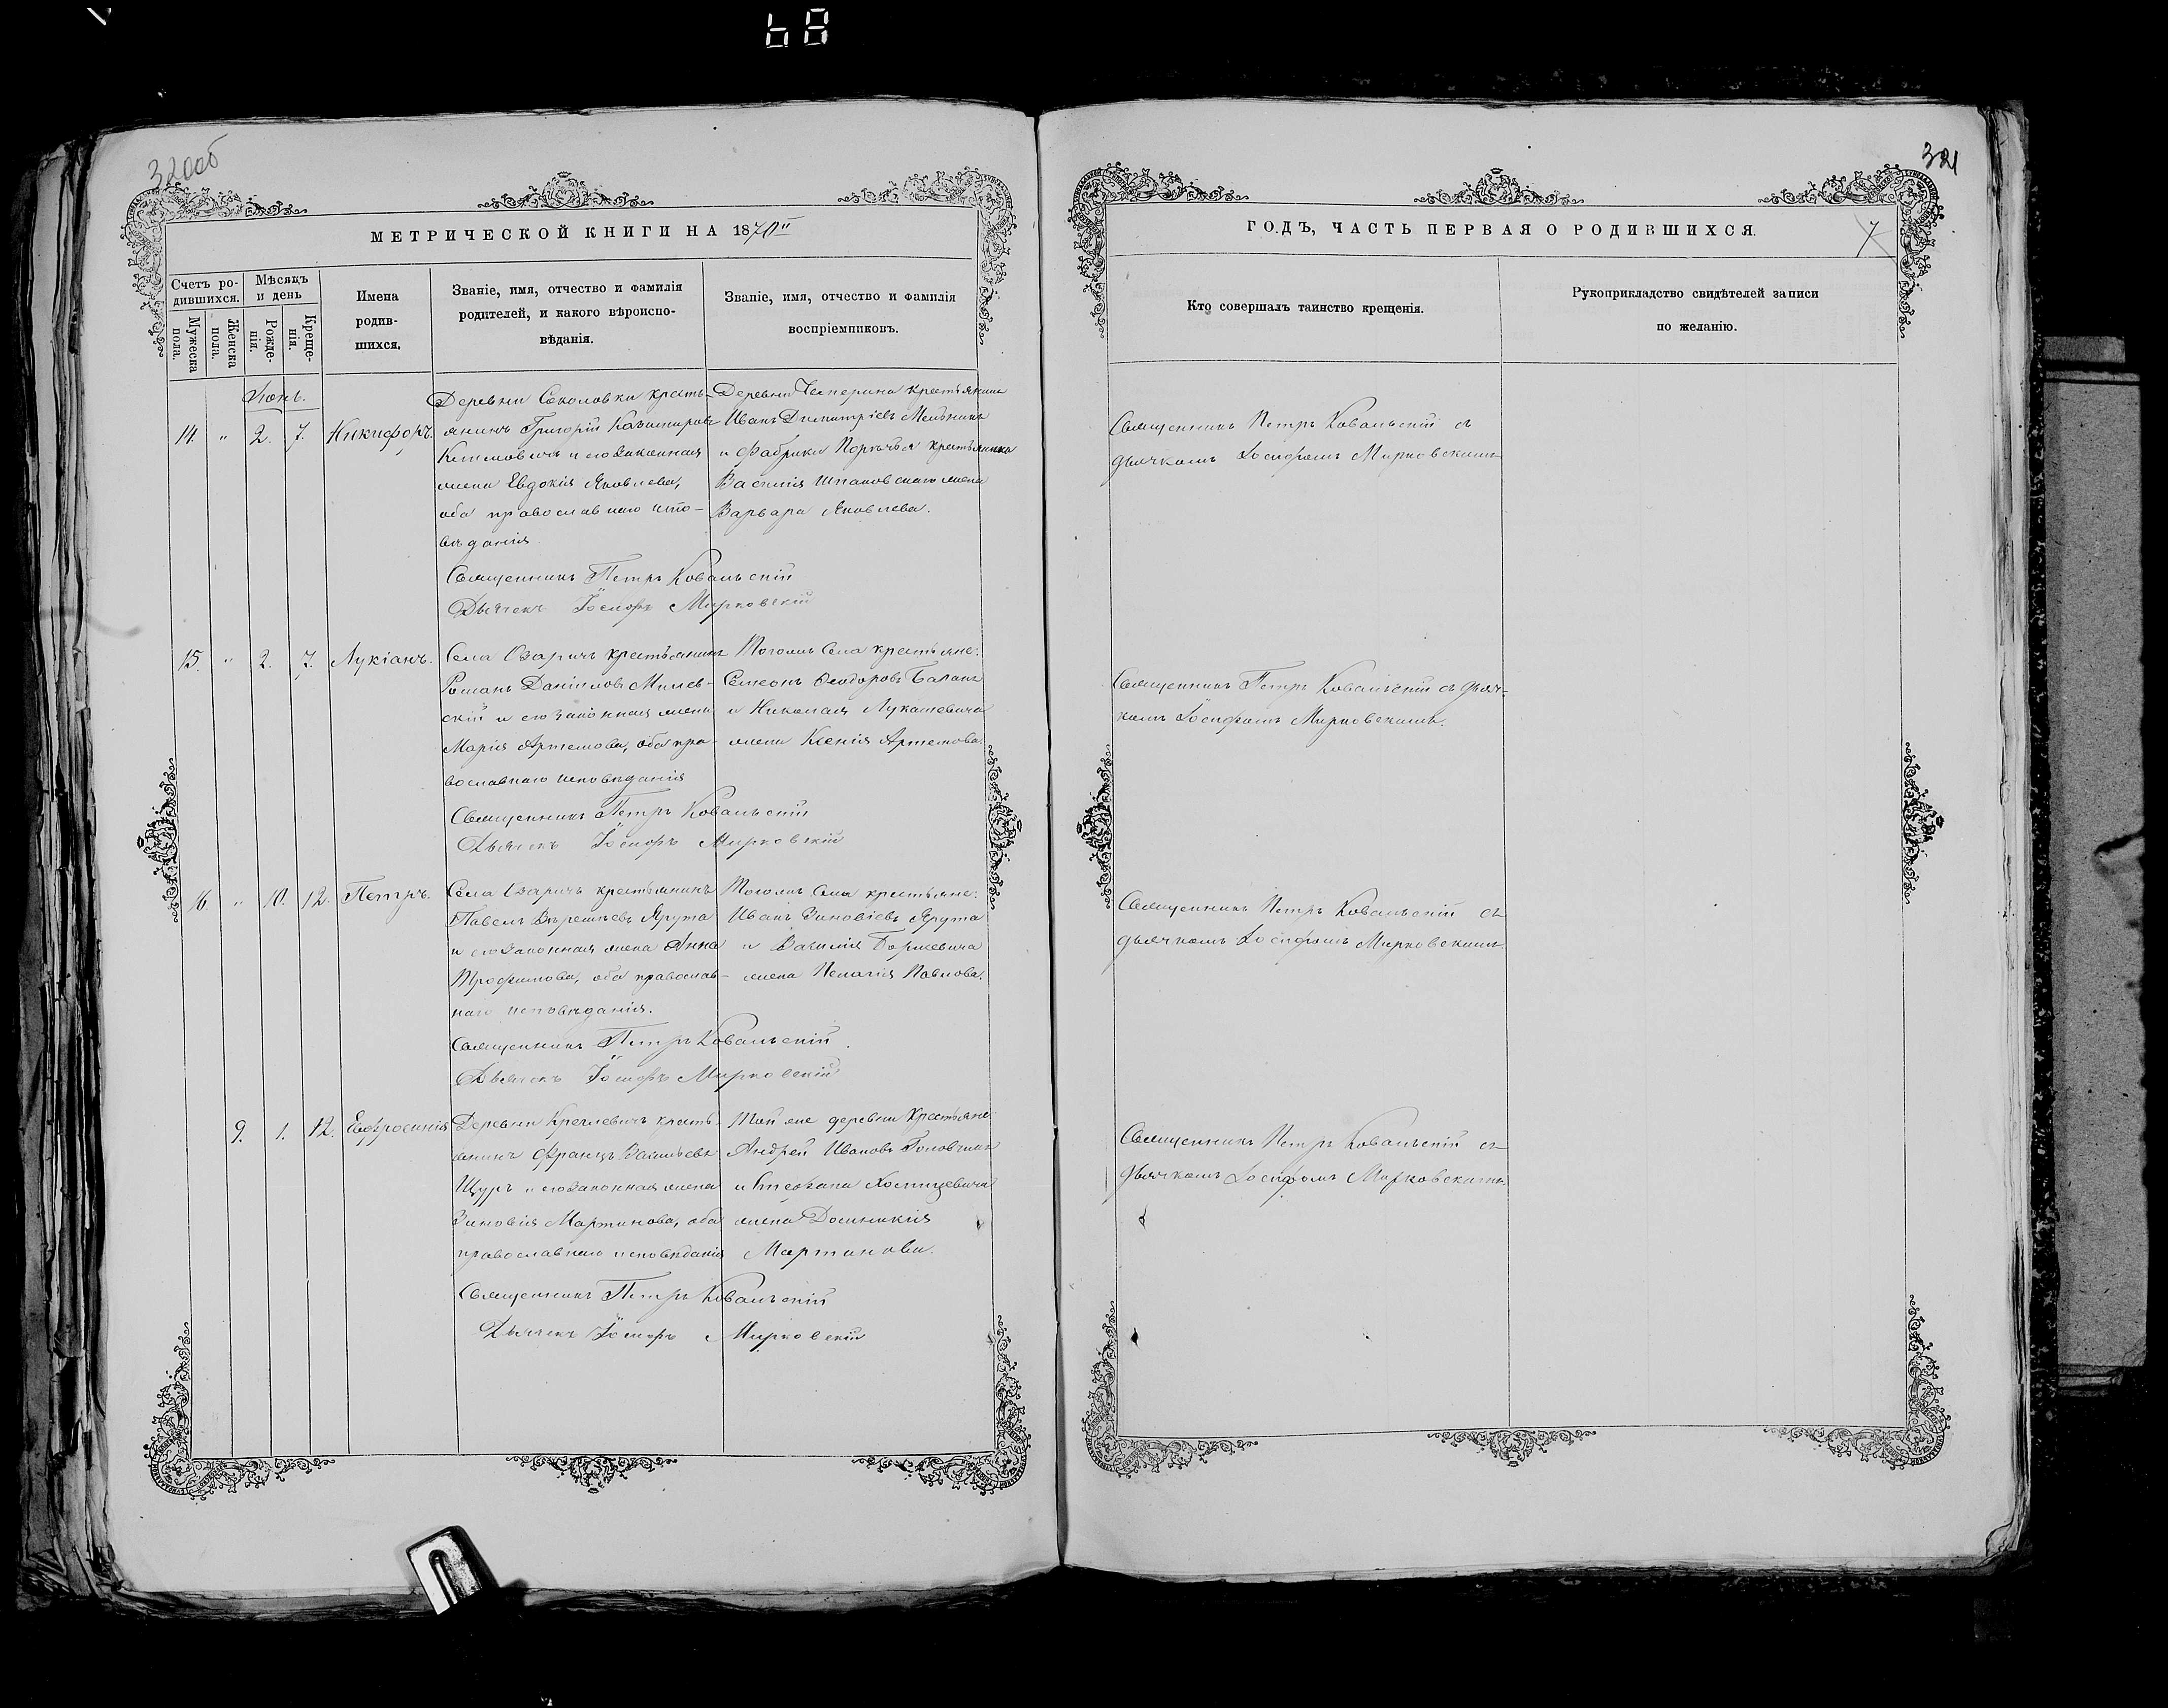 320об
321
МЕТРИЧЕСКОЙ КНИГИ НА 1870й
ГОДЪ, ЧАСТЬ ПЕРВАЯ О РОДИВШИХСЯ.
7
Счетъ ро-
дившихся.
Мужеска
пола.
Женска
пола.
Мѣсяцъ
и день
Рожде-
нія.
Креще-
нія.
Имена
родив-
шихся.
Званіе, имя, отчество и фамилія
родителей, и какого вѣроиспо-
вѣданія.
Званіе, имя, отчество и фамилія
воспріемниковъ.
Кто совершалъ таинство крещенія.
Рукоприкладство свидѣтелей записи
по желанію.
Іюнь.
14. " 2. 7. Никифоръ.
Деревни Соколовки кресть-
янинъ Григорій Казимировъ
и его законная
жена Евдокія Яковлева,
оба православнаго испо-
вѣданія
Деревни крестьянинъ
Иванъ Димитріевъ Мельникъ
и фабрики Порѣчья крестьянина
Василія Шпаковскаго жена
Варвара Яковлева.
Священникъ Петръ Ковальскій съ
дьячкомъ Іосифомъ Мирковскимъ
Священникъ Петръ Ковальскій
Дьячекъ Іосифъ Мирковскій
15. " 2. 7. Лукіанъ.
Села Озаричъ крестьянинъ
Романъ Даніиловъ Милев-
скій и его законная жена
Марія Артемова, оба пра-
вославнаго исповѣданія
Тогожъ Села крестьяне:
Семеонъ Ѳеодоровъ Баланъ
и Николая Лукашевича
жена Ксенія Артемова.
Священникъ Петръ Ковальскій съ дьяч-
комъ Іосифомъ Мирковскимъ.
Священникъ Петръ Ковальскій
Дьячекъ Іосифъ Мирковскій
16. " 10. 12. Петръ.
Села Озаричъ крестьянинъ
Павелъ Ярута
и его законная жена Анна
Трофимова, оба православ-
наго исповѣданія.
Тогожъ Села крестьяне:
Иванъ Зиновіевъ Ярута
и Василія Боржевича
жена Пелагія Павлова.
Священникъ Петръ Ковальскій съ
дьячкомъ Іосифомъ Мирковскимъ.
Священникъ Петръ Ковальскій
Дьячекъ Іосифъ Мирковскій
9. 1. 12. Евфросинія
Деревни Креглевичъ кресть-
янинъ Францъ Васильевъ
Щуръ и его законная жена
Зиновія Мартинова, оба
православнаго исповѣданія
Той же деревни Крестьяне:
Андрей Ивановъ Головчикъ
и Стефана Хостицевича
жена Домникія
Мартинова.
Священникъ Петръ Ковальскій съ
дьячкомъ Іосифомъ Мирковскимъ.
Священникъ Петръ Ковальскій
Дьячекъ Іосифъ Мирковскій